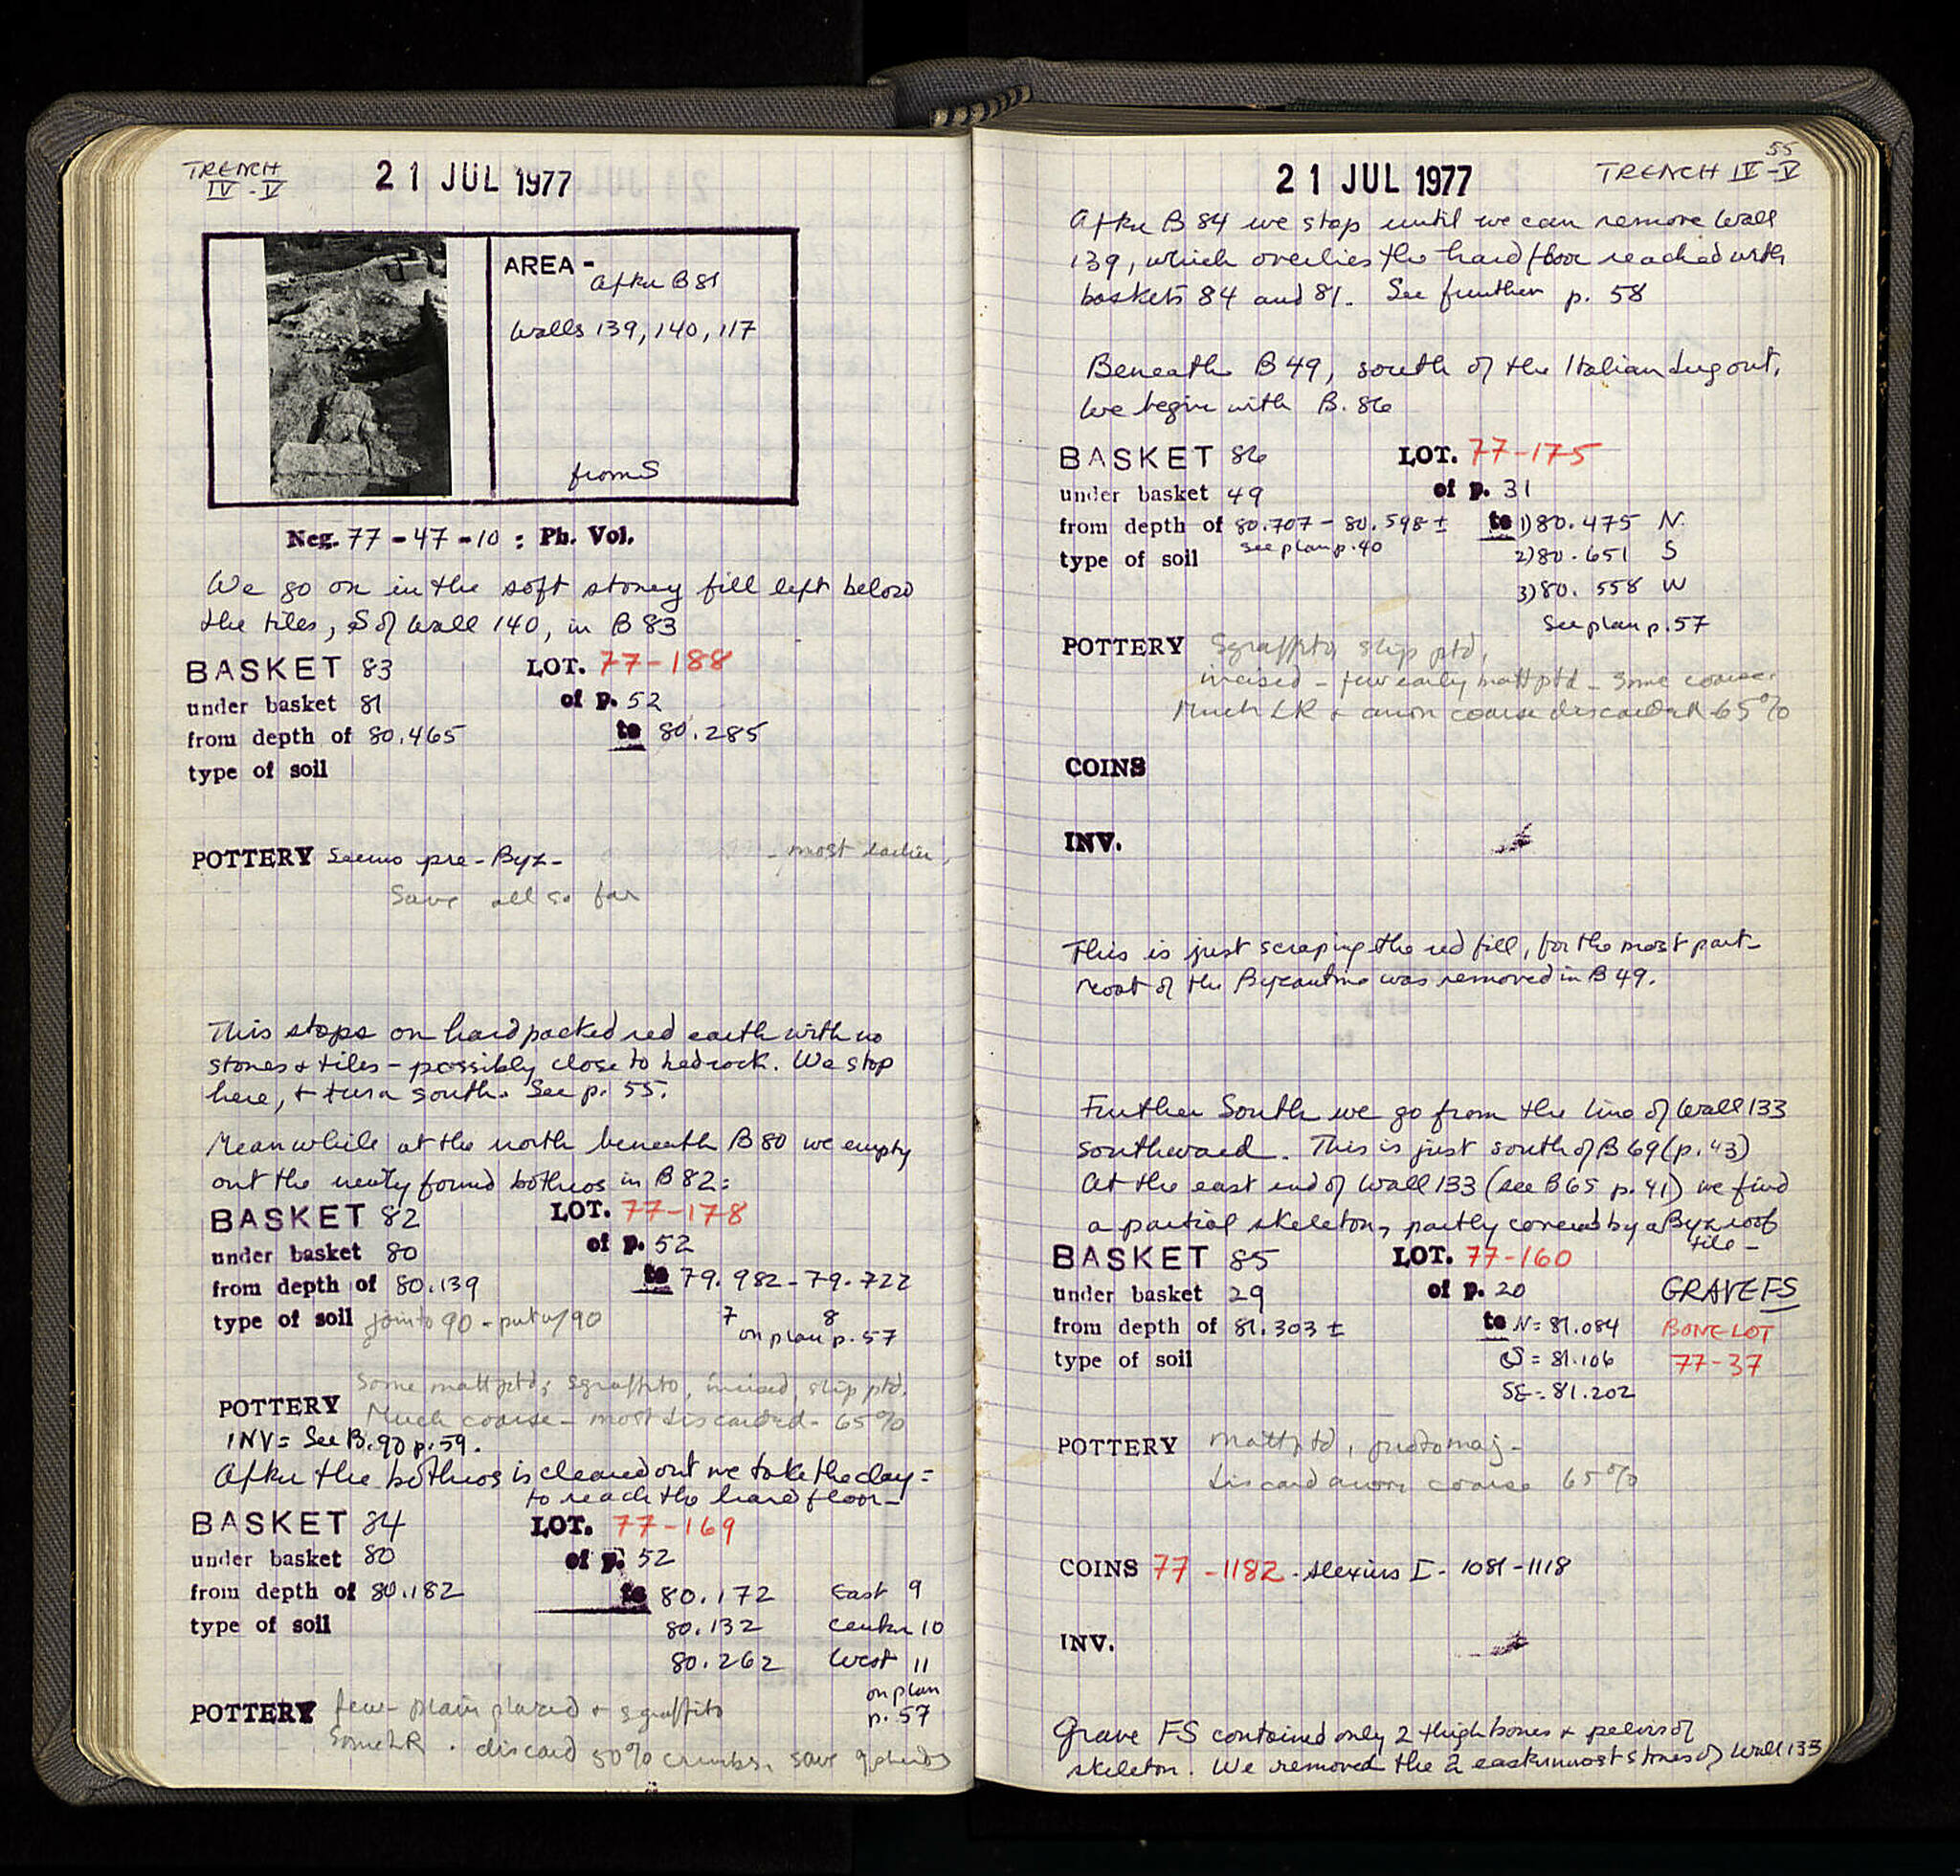 TRENCH
IV - V
21 JUL 1977
AREA - After B 81
Walls 139, 140, 117
from S
Neg. 77 - 47 - 10 : Ph. Vol.
We go on in the soft stoney fill left below
the tiles, S of Wall 140, in B 83
BASKET 83 LOT. 77-188
under basket 81 of p. 52
from depth of 80.465 to 80.285
type of soil
POTTERY Seems pre-Byz- - most earlier,
Save all so far
This stops on hard packed red earth with no
stones + tiles - possibly close to bedrock. We stop
here, + turn south. See p. 55.
Meanwhile at the north beneath B 80 we empty
out the newly found bothros in B 82:
BASKET 82 LOT. 77-178
under basket 80 of p. 52
from depth of 80.139 to 79.982 - 79.722
type of soil join to 90 - put w/ 90 7 8
on plan p. 57
Some matt ptd; sgraffito, incised, slip ptd.
POTTERY Much coarse - most discarded - 65%
INV = See B. 90 p. 59.
After the bothros is cleaned out we take the clay =
to reach the hard floor -
BASKET 84 LOT. 77-169
under basket 80 of p. 52
from depth of 80.182 to 80.172 East 9
type of soil 80.132 Center 10
80.262 West 11
on plan
p. 57
POTTERY few - plain glazed + sgraffito
Some LR . discard 50% crumbs. save 9 sherds
55
21 JUL 1977 TRENCH IV - V
After B 84 we stop until we can remove Wall
139, which overlies the hard floor reached with
baskets 84 and 81. See further p. 58
Beneath B 49, south of the Italian dug out,
we begin with B. 86
BASKET 86 LOT. 77-175
under basket 49 of p. 31
from depth of 80.707 - 80.598 ± to 1) 80.475 N
see plan p. 40
type of soil 2) 80.651 S
3) 80.558 W
See plan p. 57
POTTERY Sgraffito, slip ptd,
incised - few early matt ptd - some coarse.
Much LR + anon coarse discarded - 65%
COINS
INV.
This is just scraping the red fill, for the most part -
most of the Byzantine was removed in B 49.
Further South we go from the line of Wall 133
southward. This is just south of B 69 (p. 43)
At the east end of Wall 133 (see B 65 p. 41) we find
a partial skeleton, partly covered by a Byz roof
tile -
BASKET 85 LOT. 77-160
under basket 29 of p. 20 GRAVE FS
from depth of 81.303 ± to N = 81.084 BONE LOT
type of soil S = 81.106 77-37
SE = 81.202
POTTERY Matt ptd, protomaj -
discard anon coarse 65%
COINS 77-1182 - Alexius I - 1081-1118
INV.
Grave FS contained only 2 thigh bones + pelvis of
skeleton. We removed the 2 easternmost stones of Wall 133